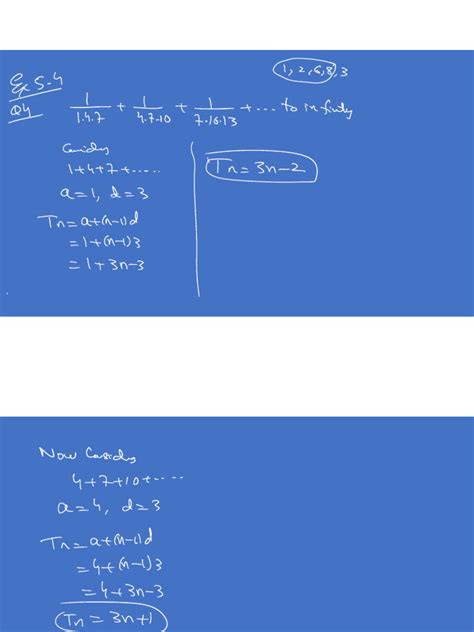 1, 2, 6, 8, 3
Ex 5.4
Q4 1/1.4.7 + 1/4.7.10 + 1/7.10.13 + .... to infinity
1+4+7+.....
a=1, d=3
Tn=a+(n-1)d
=1+(n-1)3
=1+3n-3
Tn=3n-2
Now
4+7+10+....
a=4, d=3
Tn=a+(n-1)d
=4+(n-1)3
=4+3n-3
Tn=3n+1